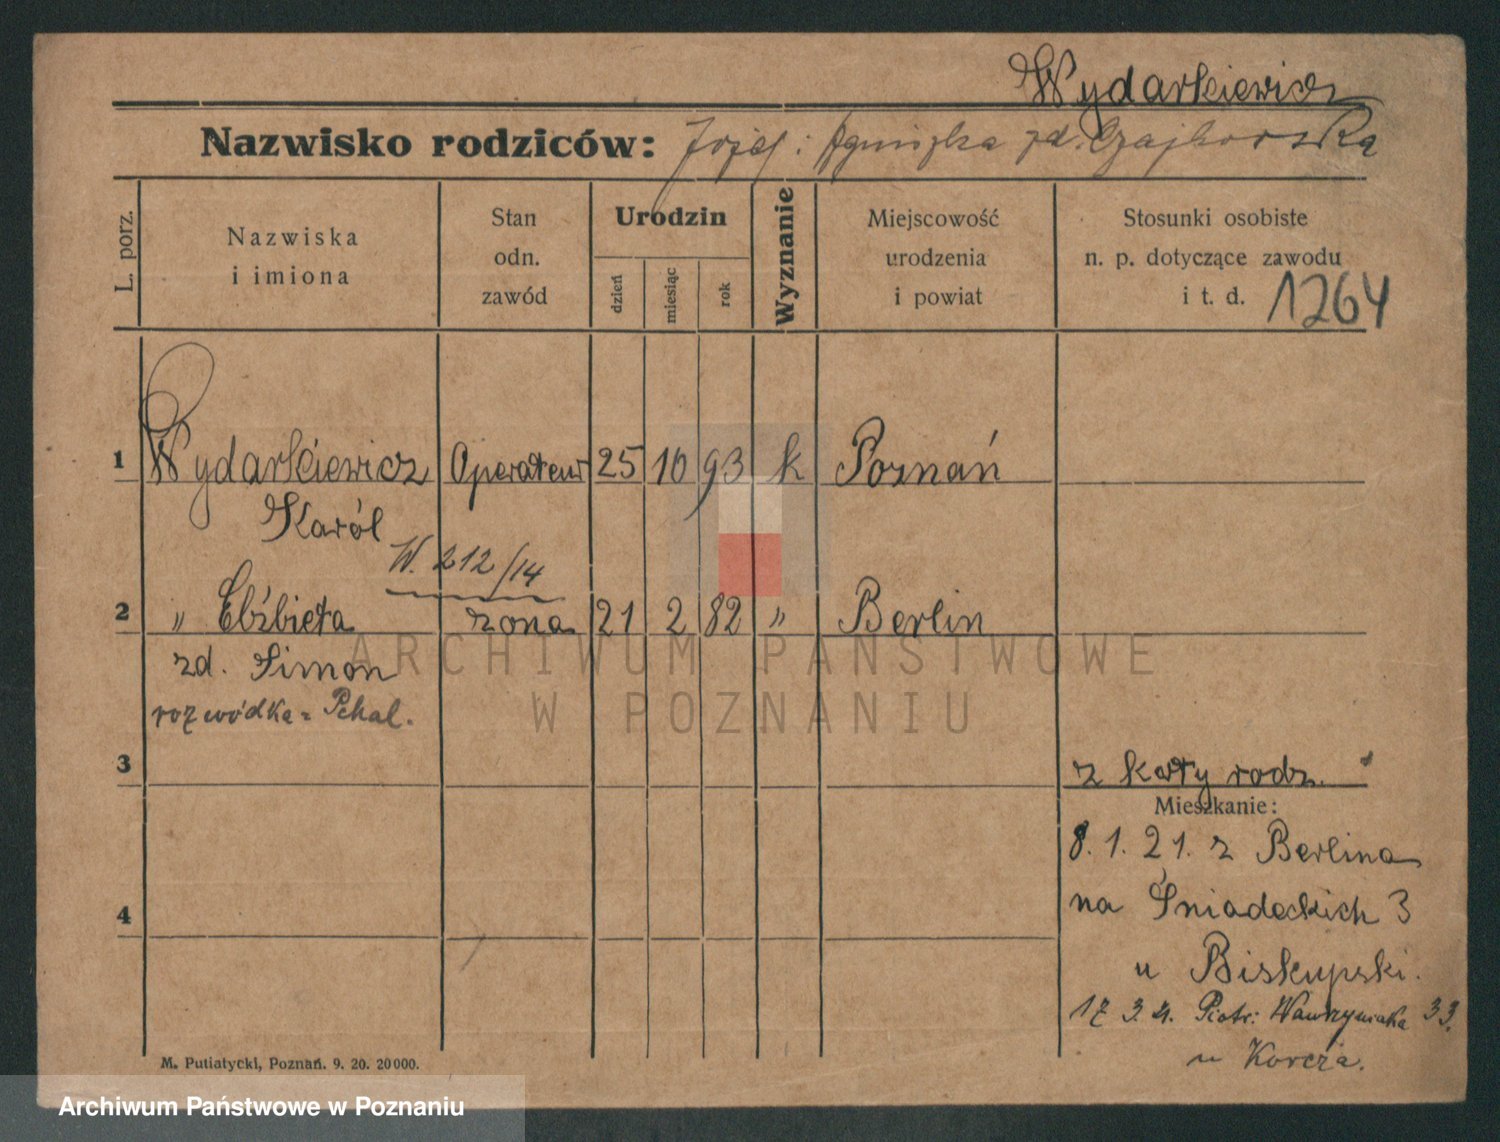 Wydarkiewicz
Nazwisko rodziców: Józef i Agnieszka zd. Czajkowska
L. porz.
Nazwiska
i imiona
Stan
odn.
zawód
Urodzin
dzień
miesiąc
rok
Wyznanie
Miejscowość
urodzenia
i powiat
Stosunki osobiste
n. p. dotyczące zawodu
i t. d.
1264
1 Wydarkiewicz Operateur 25 10 93 k Poznań
Karól
W. 212/14
2 " Elżbieta żona 21 2 82 " Berlin
zd. Simon
rozwódka =
3
z karty rodz.
Mieszkanie:
8. 1. 21. z Berlina
na Śniadeckich 3
4
u Biskupski.
17 3. 21. Piotr: Wawrzyniaka 33.
u Korcza.
M. Putiatycki, Poznań. 9. 20. 20000.
ARCHIWUM PAŃSTWOWE
W POZNANIU
Archiwum Państwowe w Poznaniu